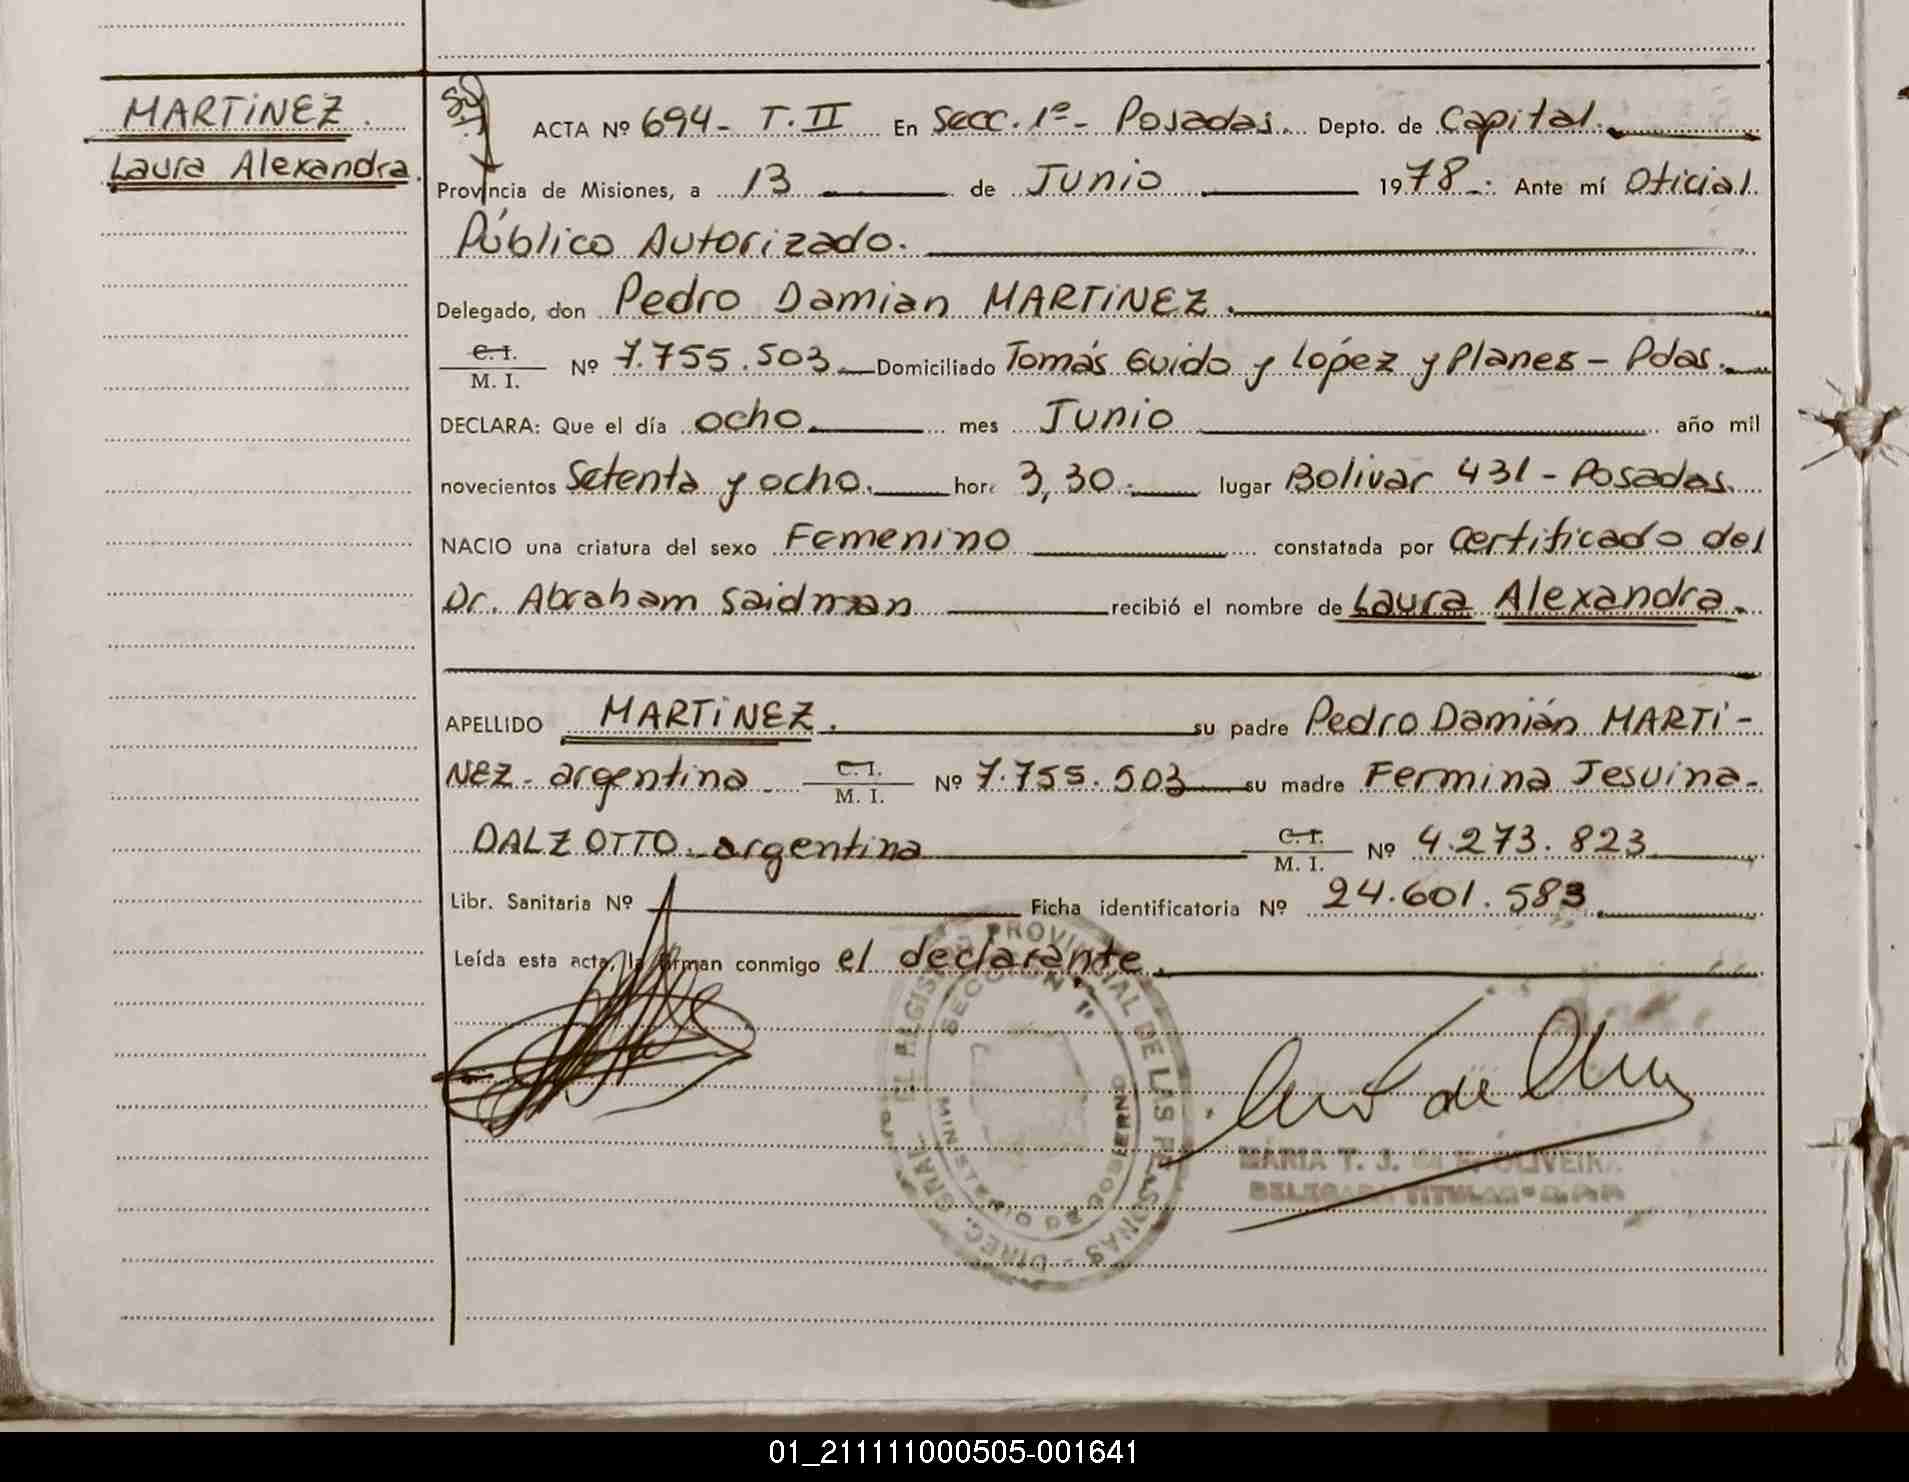 MARTINEZ.
Laura Alexandra.
ACTA Nº 694- T. II En Secc. 1ª- Posadas. Depto. de Capital.
Provincia de Misiones, a 13 de Junio 1978-: Ante mí Oficial
Público Autorizado.
Delegado, don Pedro Damian MARTINEZ.
C. I.
M. I. Nº 7.755.503 Domiciliado Tomás Guido y López y Planes - Pdas.
DECLARA: Que el día ocho mes Junio año mil
novecientos Setenta y ocho. hora 3,30. lugar Bolivar 431 - Posadas.
NACIO una criatura del sexo Femenino constatada por Certificado del
Dr. Abraham Saidman recibió el nombre de Laura Alexandra.
APELLIDO MARTINEZ. su padre Pedro Damián MARTI-
NEZ- argentina C. I. M. I. Nº 7.755.503 su madre Fermina Jesuina-
DALZOTTO- argentina C. I. M. I. Nº 4.273.823
Libr. Sanitaria Nº Ficha identificatoria Nº 24.601.583.
Leída esta acta, la firman conmigo el declarante.
DIREC. GRAL. DEL REGISTRO PROVINCIAL DE LAS PERSONAS
SECCION 1ª
MINISTERIO DE GOBIERNO
MARIA T. J. OLIVEIRA
DELEGADA TITULAR
01_211111000505-001641